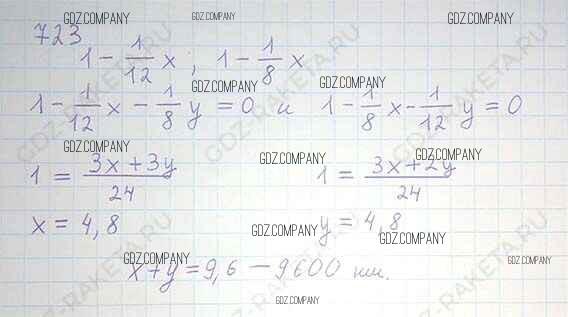 GDZ.COMPANY GDZ.COMPANY GDZ.COMPANY
723
1 - 1/12 x ; 1 - 1/8 x
GDZ.COMPANY GDZ.COMPANY
1 - 1/12 x - 1/8 y = 0 и 1 - 1/8 x - 1/12 y = 0
GDZ.COMPANY GDZ.COMPANY GDZ.COMPANY
1 = (3x + 3y)/24 1 = (3x + 2y)/24
x = 4,8 y = 4,8
GDZ.COMPANY GDZ.COMPANY
GDZ.COMPANY GDZ.COMPANY
x + y = 9,6 - 9600 км.
GDZ.COMPANY
GDZ-RAKETA.RU
GDZ-RAKETA.RU
GDZ-RAKETA.RU
GDZ-RAKETA.RU